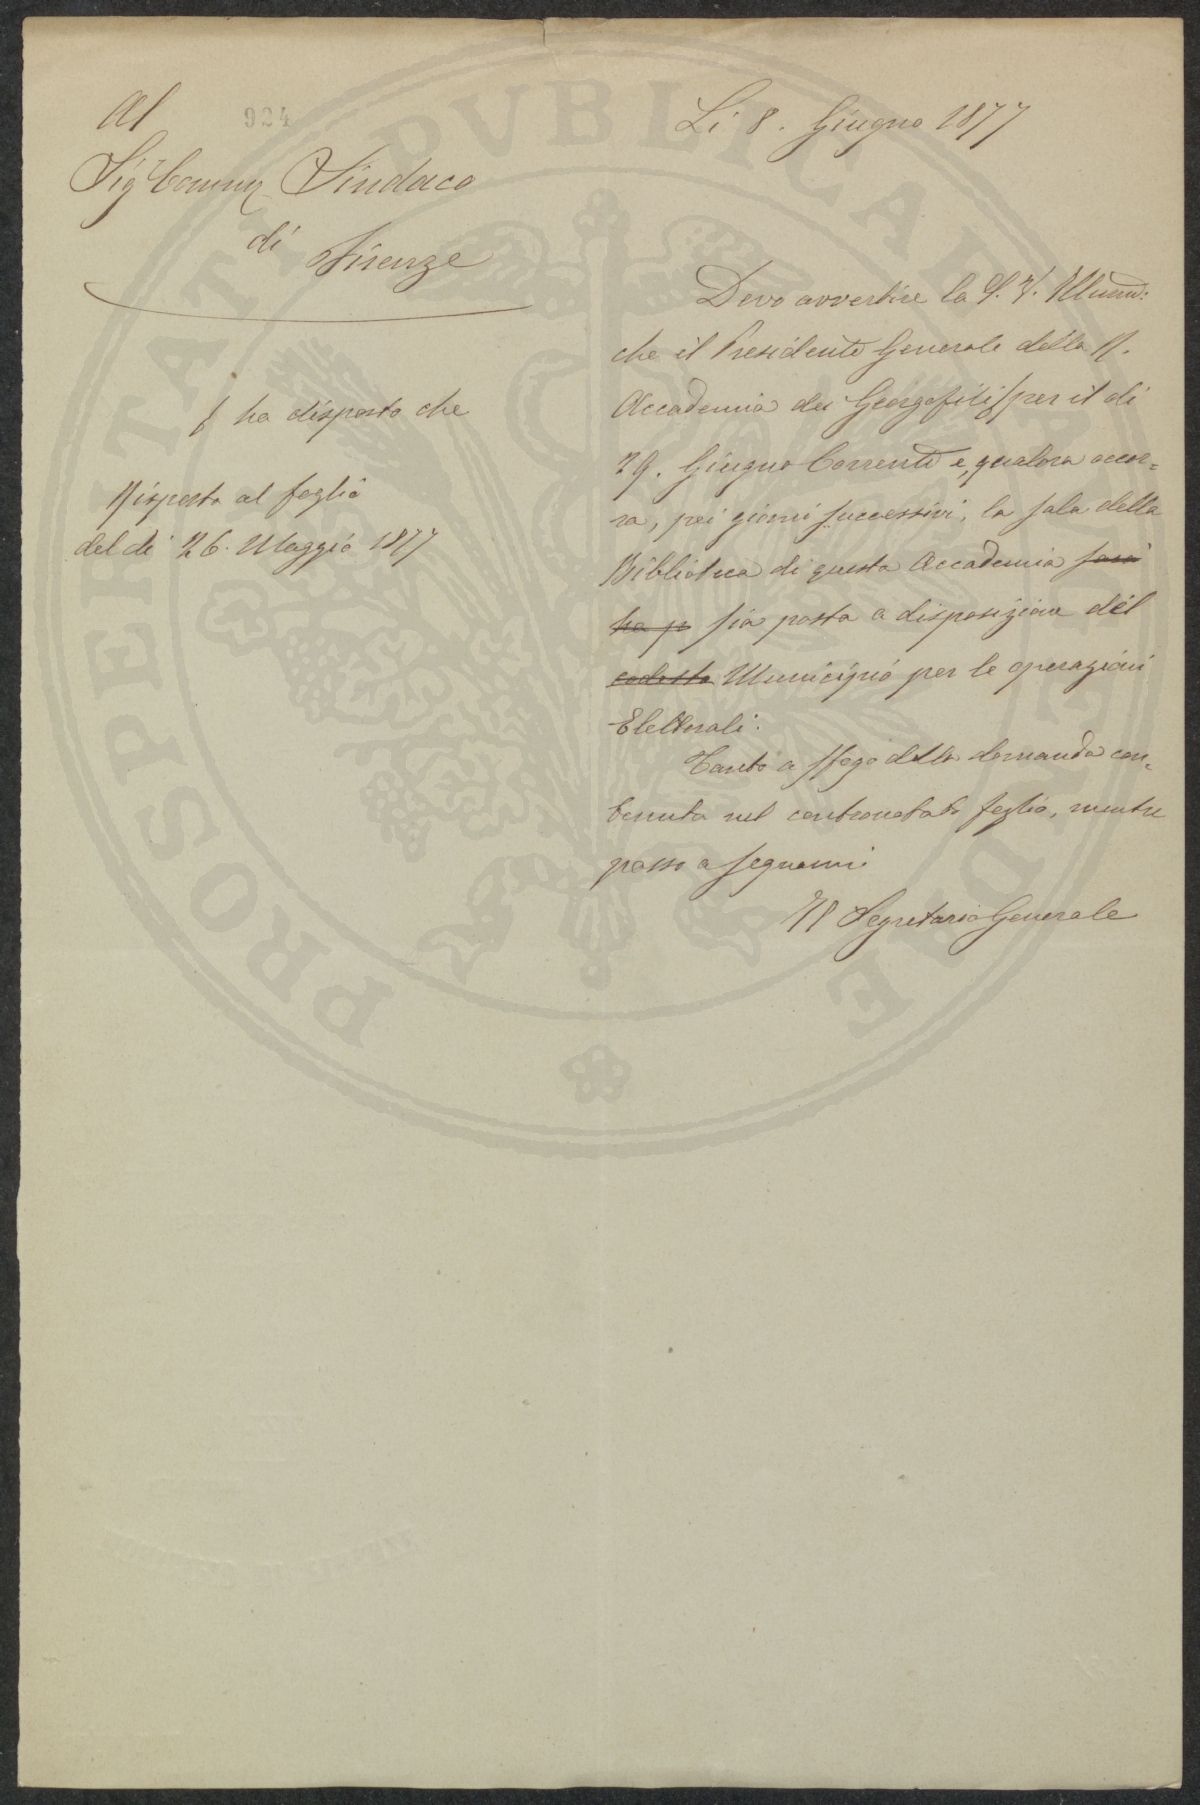 Al
924
Sig Comm Sindaco
di
Firenze
ʃ ha disposto che
Risposta al foglio
del dì 26. Maggio 1877
Lì 8. Giugno 1877
Devo avvertire la S. V. Illumᵃ:
che il Presidente Generale della R.
Accademia dei Georgofili ʃ per il dì
29. Giugno Corrente e, qualora occor=
ra, pei giorni successivi, la sala della
Biblioteca di questa Accademia sarà
ha p sia posta a disposizione del
codesto Municipio per le operazioni
Elettorali.
Tanto a sfogo della domanda con=
tenuta nel contronotato foglio, mentre
passo a segnarmi
Il Segretario Generale
PROSPERITATI PVBLICAE AVGENDAE